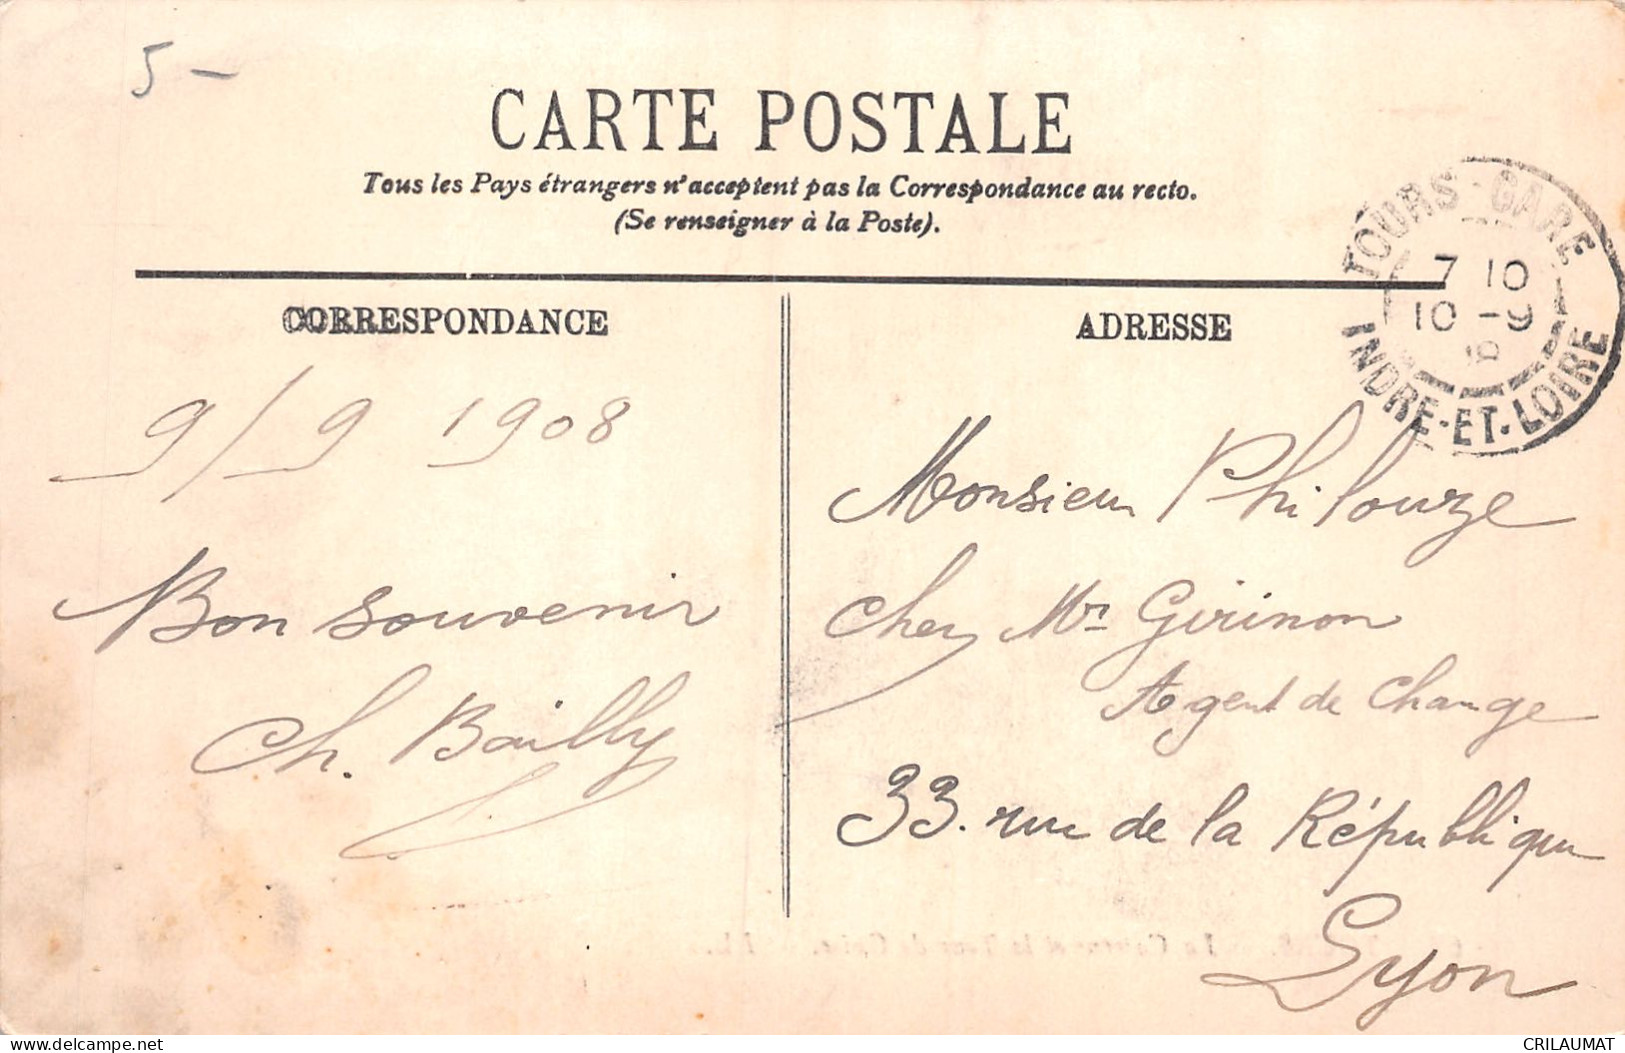 5 -
CARTE POSTALE
Tous les Pays étrangers n'acceptent pas la Correspondance au recto.
(Se renseigner à la Poste).
TOURS-GARE
7 10
10 -9
INDRE-ET-LOIRE
CORRESPONDANCE
9/9 1908
Bon souvenir
Ch. Bailly
ADRESSE
Monsieur Philouze
Chez Mr Girinon
Agent de Change
33. rue de la République
Lyon
delcampe.net
CRILAUMAT